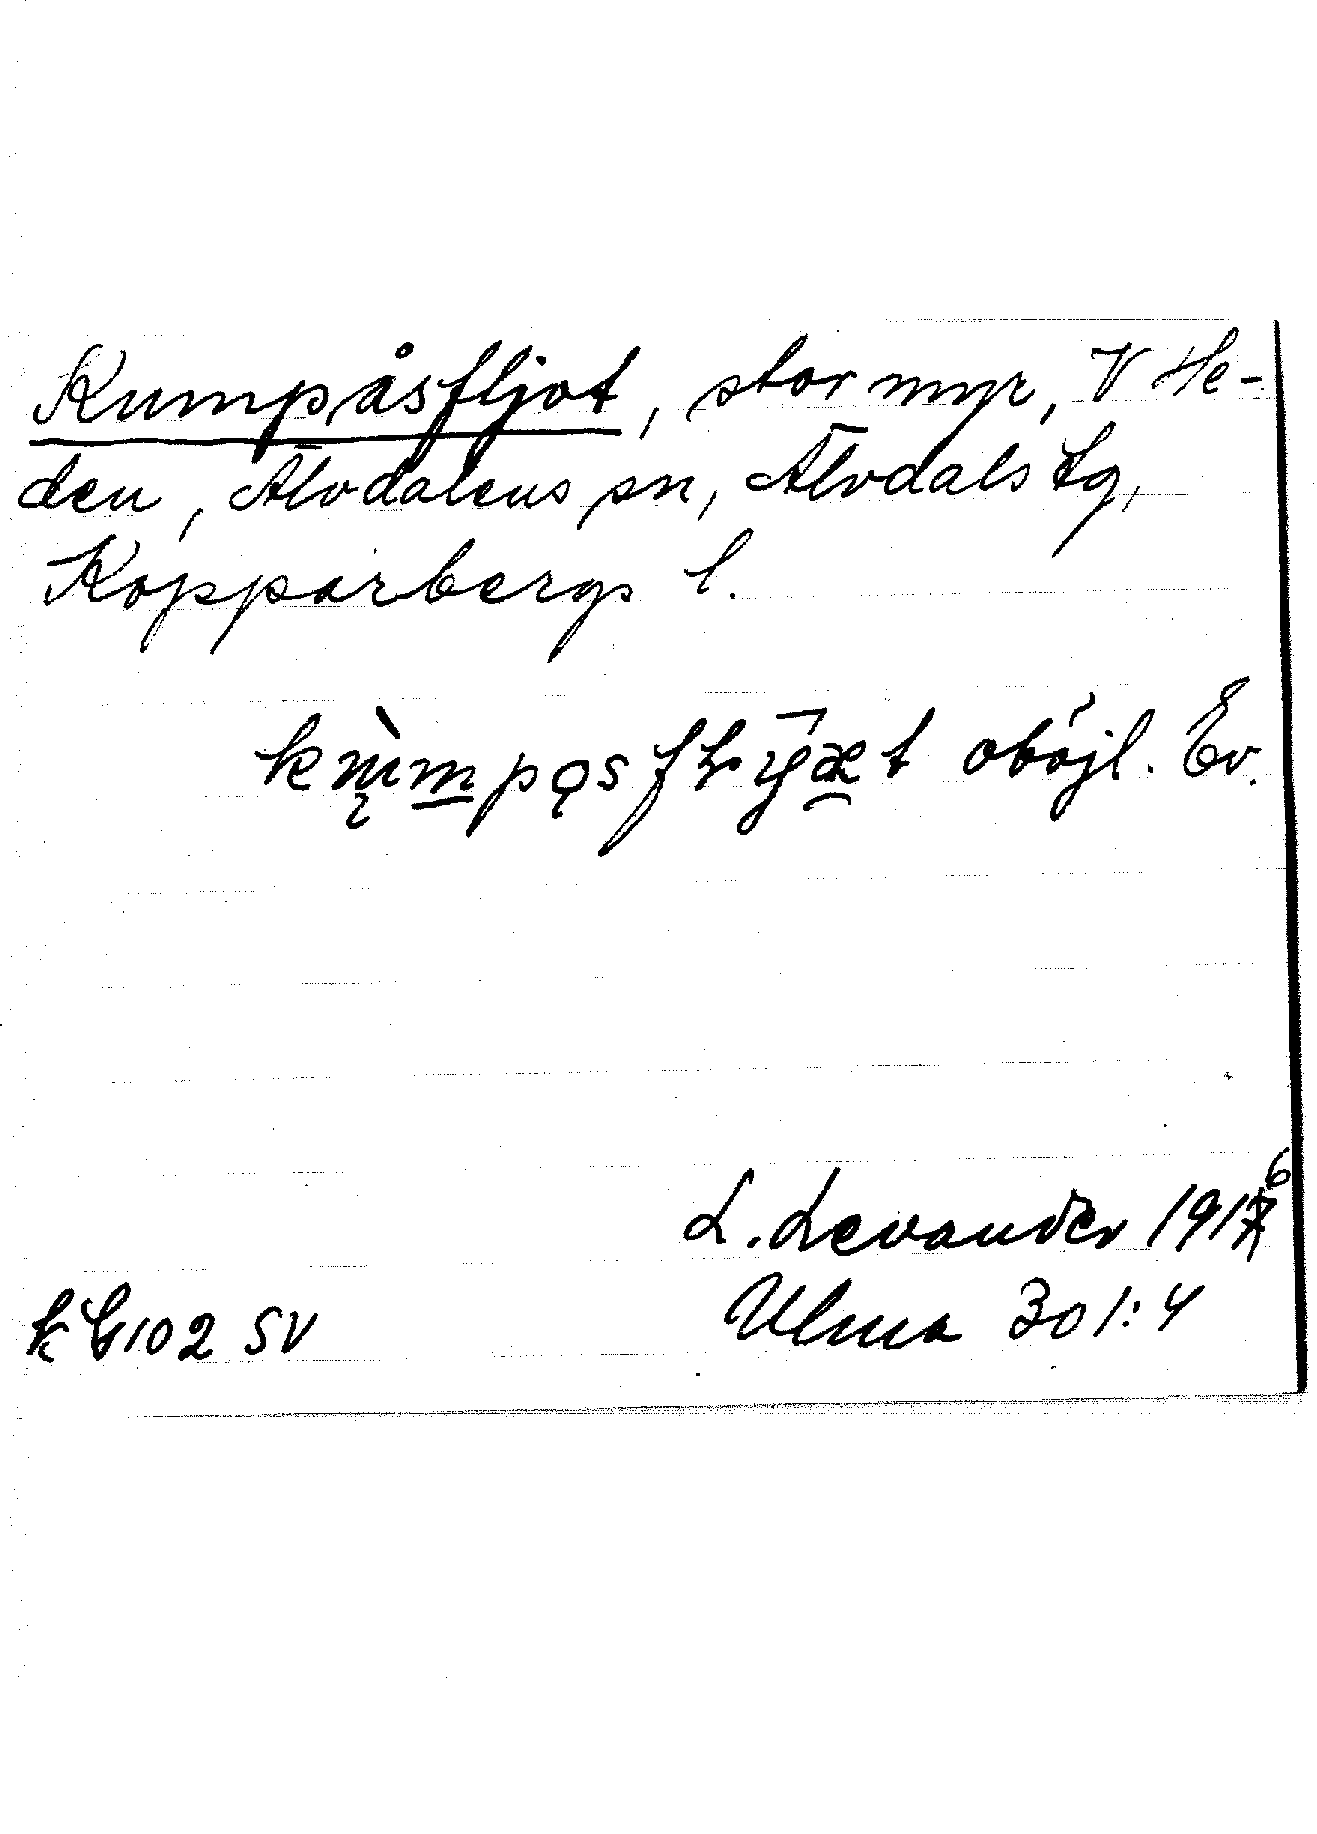 Kumpåsfljot, stor myr, V He-
den, Älvdalens sn, Älvdals tg,
Kopparbergs l.
oböjl. Ev.
L. Levander 1916
k G 102 SV
Ulma 301:4